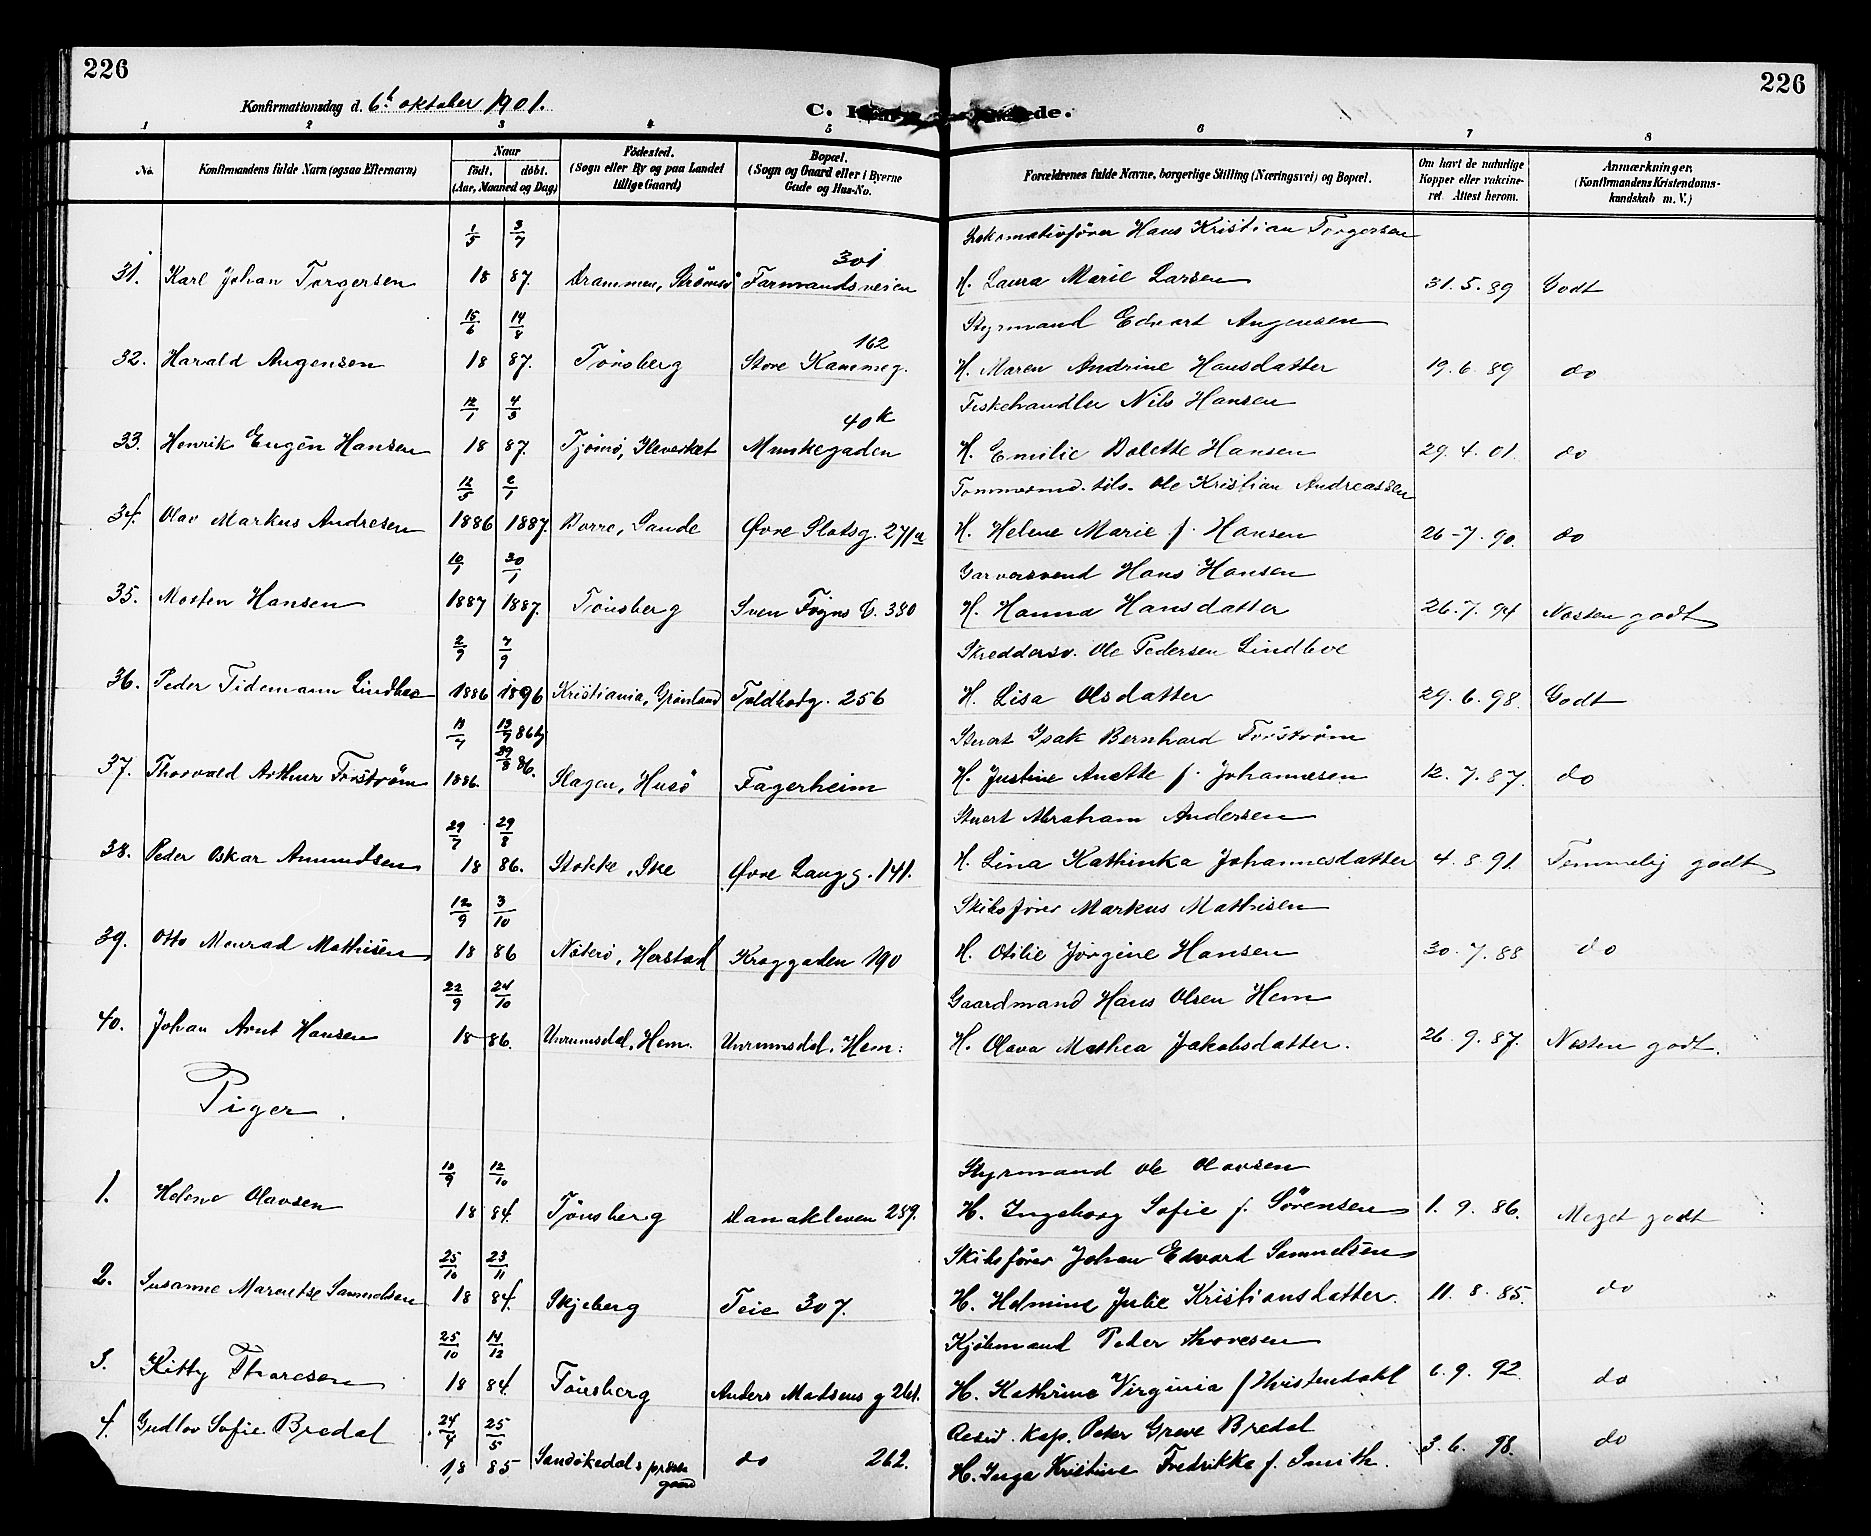 226
226
Konfirmationsdag d. 6t oktober 1901.
C. de.
1 2 3 4 5 6 7 8
No. Konfirmandens fulde Navn (ogsaa Efternavn) Naar født. døbt. (Aar, Maaned og Dag) Fødested. (Sogn eller By og paa Landet tillige Gaard) Bopæl. (Sogn og Gaard eller i Byerne Gade og Hus-No. Forældrenes fulde Navne, borgerlige Stilling (Næringsvei) og Bopæl. Om havt de naturlige Kopper eller vakcineret. Attest herom. Anmærkninger. (Konfirmandens Kristendomskundskab m. V.)
1/5 3/7 301 Lokomotivfører Hans Kristian Torgersen
31. Karl Johan Torgersen 18 87. Drammen, Strømsø Farmandsveien H. Laura Marie Larsen 31.5.89 Godt
15/6 14/8 162 Styrmand Edvart Angensen
32. Harald Angensen 18 87. Tønsberg Store Kammeg. H. Maren Andrine Hansdatter 19.6.89 do
12/1 4/3 40k Fiskehandler Nils Hansen
33. Henrik Eugén Hansen 18 87. Tjømø, Munkegaden H. Emilie Dolette Hansen 29.4.01. do
12/5 2/1 Tømmermd. Ole Kristian Andreassen
34. Olav Markus Andresen 1886 1887 Borre, Sande Øvre Slotsg. 271a H. Helene Marie f. Hansen 26-7.90. do
10/1 30/1 Garversvend Hans Hansen
35. Morten Hansen 1887 1887. Tønsberg Sven Fogns G. 380 H. Hanna Hansdatter 26.7.94 Næsten godt
2/9 7/9 Skreddersv. Ole Pedersen Lindhoe
36. Peder Tidemann Lindhoe 1886 1896 Kristiania, Grønland Toldbodg. 256 H. Lisa Olsdatter 29.6.98. Godt
13/7 13/7 86 hj Stuert Isak Bernhard Forstrøm
37. Thorvald Arthur Forstrøm 1886. 29/8 86. Slagen, Husø Fagerheim H. Justine Anette f. Johannesen 12.7.87. do
29/7 29/8 Stuert Abraham Andersen
38. Peder Oskar Amundsen 18 86. Stokke, Øvre Langg. 141. H. Lina Kathinka Johannesdatter 4.8.91. Temmelig godt
12/9 3/10 Skibsfører Markus Mathisen
39. Otto Monrad Mathisen 18 86 Nøterø, Herstad Kroggaden 190 H. Otilie Jørgine Hansen 30.7.88 do
22/9 24/10 Gaardmand Hans Olsen Hem
40. Johan Arnt Hansen 18 86. Unrumsdal, Hem. Unrumsdal, Hem. H. Olava Mathea Jakobsdatter. 26.9.87. Næsten godt.
Piger.
10/9 12/10 Styrmand Ole Olavsen
1. Helene Olavsen 18 84. Tønsberg Danakleven 289. H. Ingeborg Sofie f. Sørensen 1.9.86. Meget godt
25/10 23/11 Skibsfører Johan Edvard Samuelsen
2. Susanne Samuelsen 18 84. Skjeberg Teie 307. H. Helmine Julie Kristiansdatter. 11.8.85. do
25/10 14/12 Kjøbmand Peder Thoresen
3. Kitty Thoresen 18 84. Tønsberg Anders Madsens g 261. H. Kathrine Virginia f Kvistendahl 6.9.92. do
24/4 25/5 Resid. Kap. Peter Greve Bredal
4. Gudlov Sofie Bredal 18 85 Sandøkedals præstegaard do 262. H. Inga Kristine Fredrikke f. Smith. 3.6.98. do